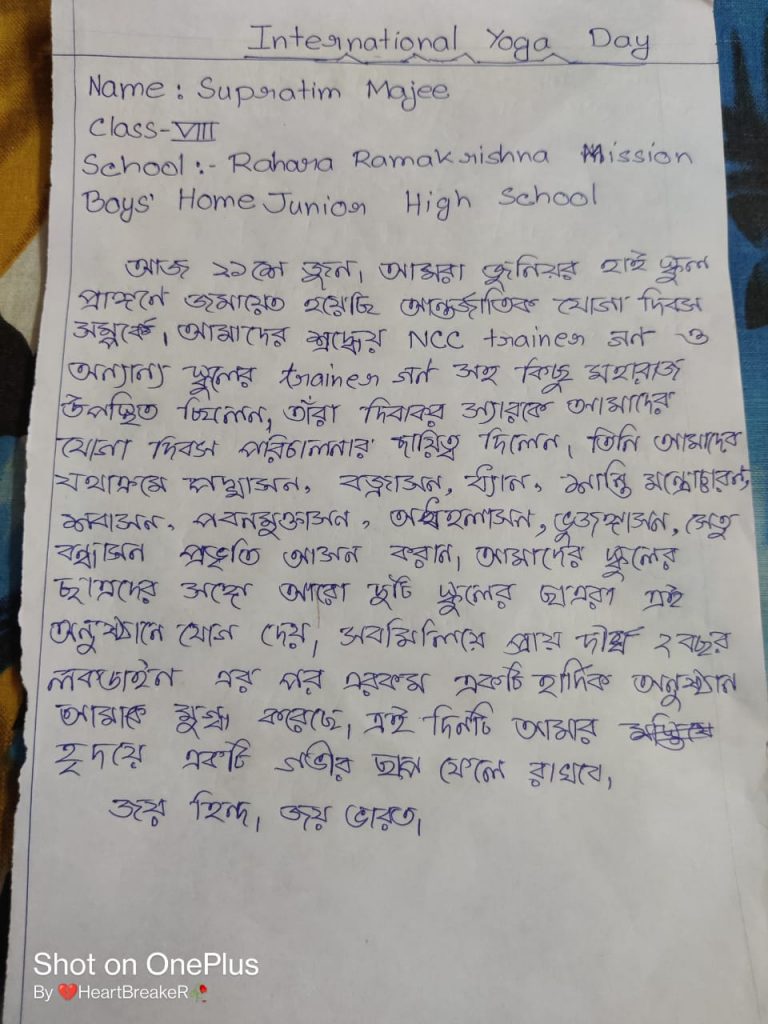 International Yoga Day
Name : Supratim Majee
Class-VIII
School :- Rahara Ramakrishna Mission
Boys' Home Junior High School
আজ ২১শে জুন। আমরা জুনিয়র হাই স্কুল
প্রাঙ্গনে জমায়েত হয়েছি আন্তর্জাতিক যোগা দিবস
সম্পর্কে। আমাদের শ্রদ্ধেয় NCC trainer গন ও
অন্যান্য স্কুলের trainer গন সহ কিছু মহারাজ
উপস্থিত ছিলেন, তাঁরা দিবাকর স্যারকে আমাদের
যোগা দিবস পরিচালনার দায়িত্ব দিলেন। তিনি আমাদের
যথাক্রমে পদ্মাসন, বজ্রাসন, ধ্যান, শান্তি মন্ত্রোচ্চারন,
শবাসন, পবনমুক্তাসন, অর্ধহলাসন, ভুজঙ্গাসন, সেতু
বন্ধাসন প্রভৃতি আসন করান। আমাদের স্কুলের
ছাত্রদের সঙ্গে আরো দুটি স্কুলের ছাত্ররা এই
অনুষ্ঠানে যোগ দেয়। সবমিলিয়ে প্রায় দীর্ঘ ২ বছর
লকডাউন এর পর এরকম একটি হার্দিক অনুষ্ঠান
আমাকে মুগ্ধ করেছে। এই দিনটি আমার
হৃদয়ে একটি গভীর ছাপ ফেলে রাখবে।
জয় হিন্দ। জয় ভারত।
Shot on OnePlus
By ❤️HeartBreakeR🥀